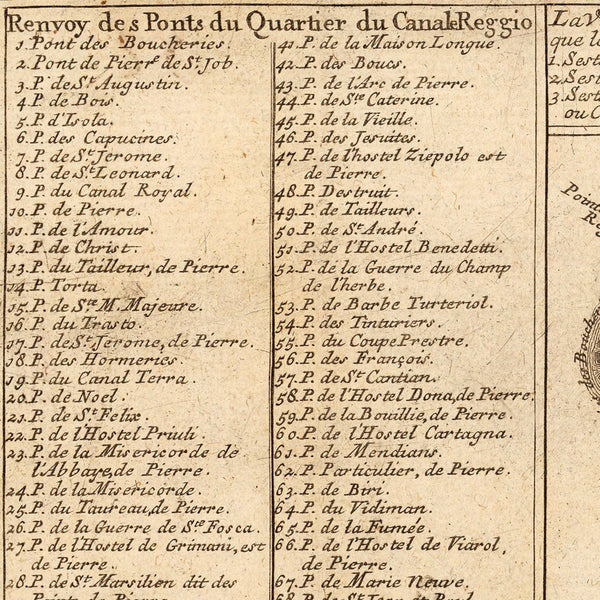 Renvoy des Ponts du Quartier du Canale Reggio
1. Pont des Boucheries.
2. Pont de Pierre de St. Job.
3. P. de St. Augustin.
4. P. de Bois.
5. P. d'Isola.
6. P. des Capucines.
7. P. de St. Jerome.
8. P. de St. Leonard.
9. P. du Canal Royal.
10. P. de Pierre.
11. P. de l'Amour.
12. P. de Christ.
13. P. du Tailleur, de Pierre.
14. P. Torta.
15. P. de Ste. M. Majeure.
16. P. du Trasto.
17. P. de St. Jerome, de Pierre.
18. P. des Hormeries.
19. P. du Canal Terra.
20. P. de Noel.
21. P. de St. Felix.
22. P. de l'Hostel Priuli.
23. P. de la Misericorde de
l'Abbaye, de Pierre.
24. P. de la Misericorde.
25. P. du Taureau, de Pierre.
26. P. de la Guerre de Ste. Fosca.
27. P. de l'Hostel de Grimani, est
de Pierre.
28. P. de St. Marsilien dit des
41. P. de la Maison Longue.
42. P. des Boucs.
43. P. de l'Arc de Pierre.
44. P. de Ste. Caterine.
45. P. de la Vieille.
46. P. des Jesuites.
47. P. de l'hostel Ziepolo est
de Pierre.
48. P. Destruit.
49. P. de Tailleurs.
50. P. de St. André.
51. P. de l'Hostel Benedetti.
52. P. de la Guerre du Champ
de l'herbe.
53. P. de Barbe Turteriol.
54. P. des Tinturiers.
55. P. du Coupe Prestre.
56. P. des François.
57. P. de St. Cantian.
58. P. de l'Hostel Dona, de Pierre.
59. P. de la Bouillie, de Pierre.
60. P. de l'Hostel Cartagna.
61. P. de Mendians.
62. P. Particulier, de Pierre.
63. P. de Biri.
64. P. du Vidiman.
65. P. de la Fumée.
66. P. de l'Hostel de Viarol,
de Pierre.
67. P. de Marie Neuve.
La V
que l
1. Sest
2. Sest
3. Sest
ou C
Point
Re
des Bouche